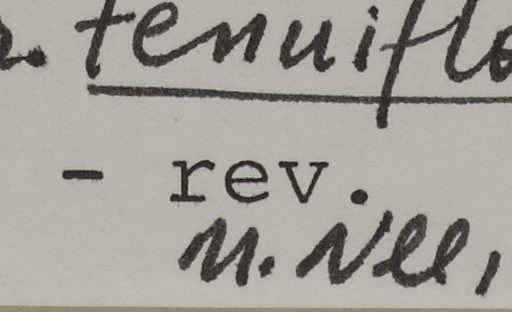 . tenuiflo
- rev.
M. Nee,